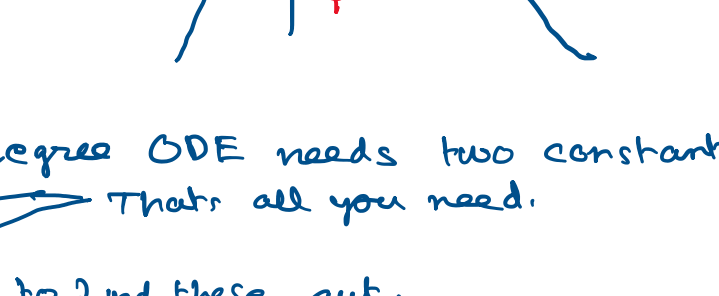 egree ODE needs two constant
Thats all you need.
to find these out.